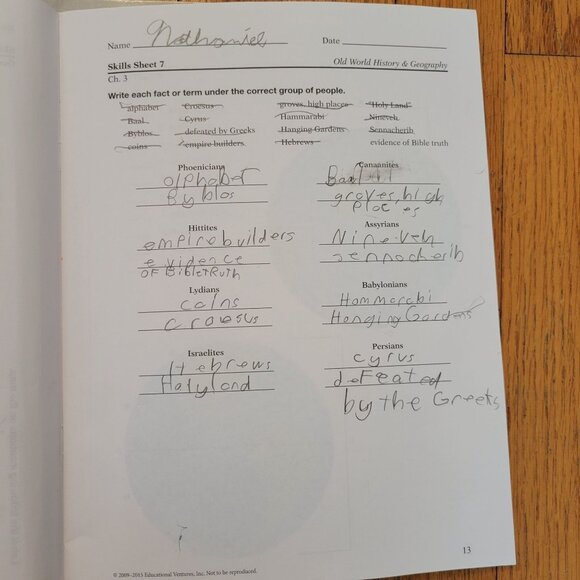 Name Nathaniel Date
Skills Sheet 7 Old World History & Geography
Ch. 3
Write each fact or term under the correct group of people.
alphabet Croesus groves, high places "Holy Land"
Baal Cyrus Hammurabi Nineveh
Byblos defeated by Greeks Hanging Gardens Sennacherib
coins empire builders Hebrews evidence of Bible truth
Phoenicians Canaanites
alphabet Baal
Byblos groves, high
places
Hittites Assyrians
empirebuilders Nineveh
evidence sennacherib
OF BibleTRuth
Lydians Babylonians
coins Hammarabi
croesus Hanging Gardens
Israelites Persians
Hebrews cyrus
Holyland defeated
by the Greeks
13
© 2009–2015 Educational Ventures, Inc. Not to be reproduced.